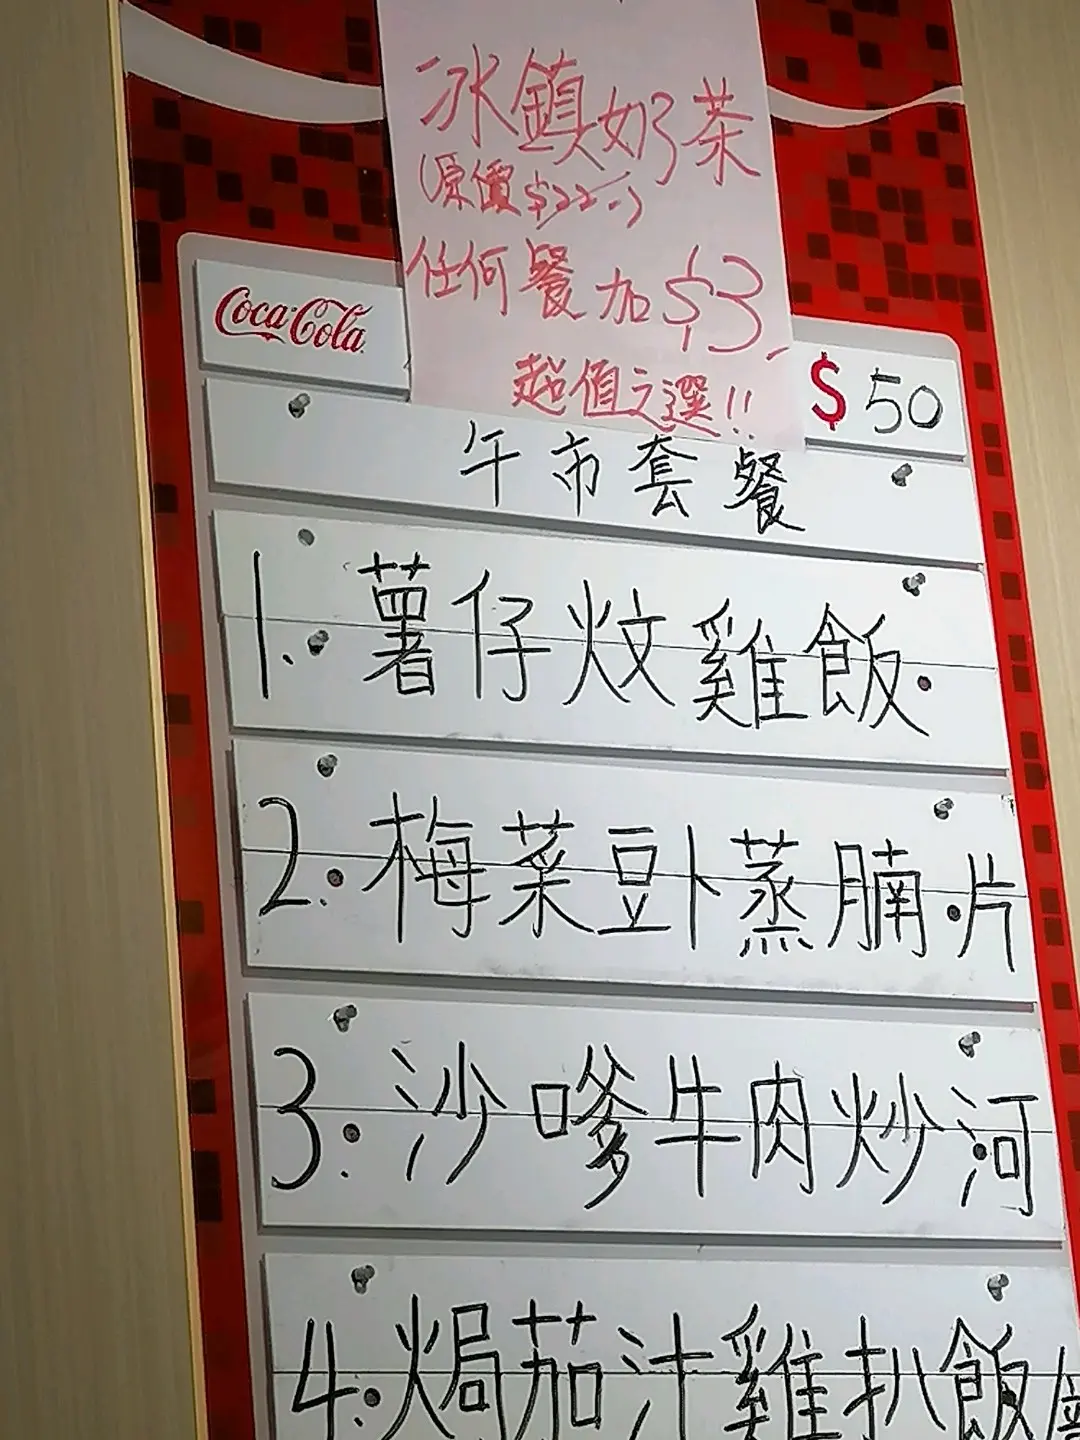 冰鎮奶茶
(原價$22.-)
任何餐加$3.-
超值之選!!
Coca-Cola
$50
午市套餐
1. 薯仔炆雞飯
2. 梅菜豆卜蒸腩片
3. 沙嗲牛肉炒河
4. 焗茄汁雞扒飯